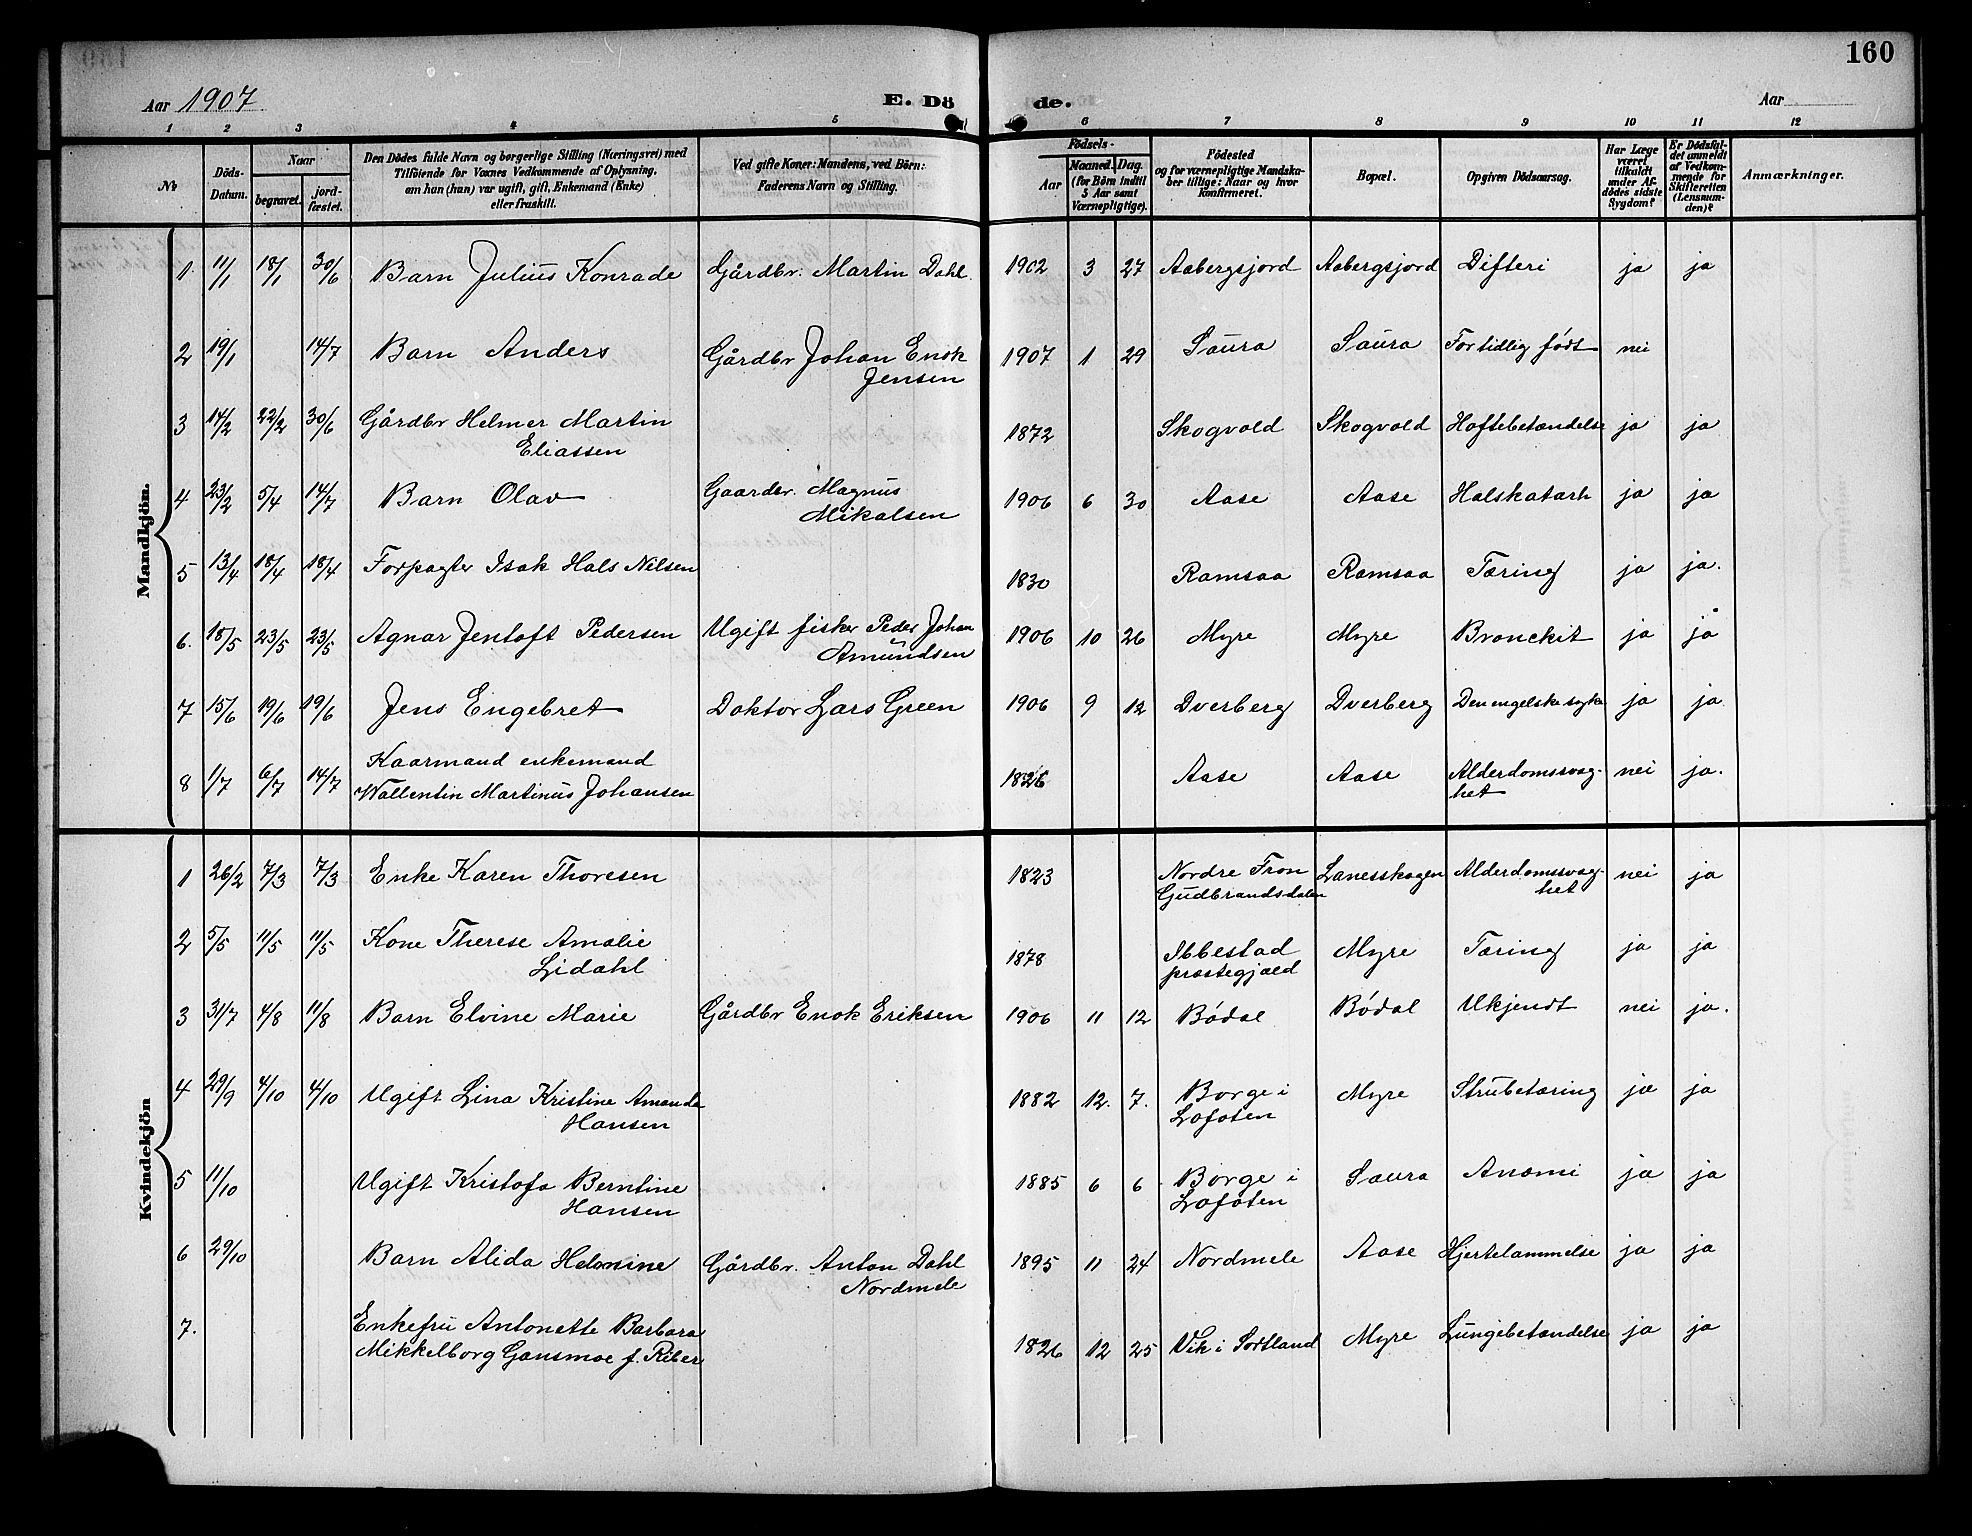 160
Aar 1907 E. Dö de. Aar
1 2 3 4 5 6 7 8 9 10 11 12
No Döds-Datum. Naar begravet. jord-fæstet. Den Dödes fulde Navn og borgerlige Stilling (Næringsvei) med Tilföiende for Voxnes Vedkommende af Oplysning, om han (hun) var ugift, gift, Enkemand (Enke) eller fraskilt. Ved gifte Koner: Mandens, ved Börn: Faderens Navn og Stilling. Födsels- Aar Maaned. Dag. (for Börn indtil 5 Aar samt Værnepligtige). Födested og for værnepligtige Mandskaber tillige: Naar og hvor konfirmeret. Bopæl. Opgiven Dödsaarsag. Har Læge været tilkaldt under Afdödes sidste Sygdom? Er Dödsfaldet anmeldt af Vedkommende for Skifteretten (Lensmanden)? Anmærkninger.
Mandkjön.
1 11/1 18/1 30/6 Barn Julius Konrade Gårdbr. Martin Dahl 1902 3 27 Aabergsjord Aabergsjord Difteri ja ja
2 19/1 14/7 Barn Anders Gårdbr Johan Enok 1907 1 29 Saura Saura For tidlig født nei
Jensen
3 14/2 22/2 30/6 Gårdbr Helmer Martin 1872 Skogvold Skogvold Hoftebetændelse ja ja
Eliassen
4 23/2 5/4 14/7 Barn Olav Gaardbr. Magnus 1906 6 30 Aase Aase Halskatarh ja ja
Mikalsen
5 13/4 18/4 18/4 Forpagter Isak Hals Nilsen 1830 Ramsaa Ramsaa Tæring ja ja.
6. 18/5 23/5 23/5 Agnar Jentoft Pedersen Ugift fisker Peder Johan 1906 10 26 Myre Myre Bronckit ja jå
Amundsen
7 15/6 19/6 19/6 Jens Engebret Doktor Lars Green 1906 9 12 Dverberg Dverberg Den engelske syke ja ja.
Kaarmand enkemand
8 1/7 6/7 14/7 Wallentin Martinus Johansen 1826 Aase Aase Alderdomssvag- nei ja.
het
Kvindekjön
1 26/2 7/3 7/3 Enke Karen Thoresen 1823 Nordre Fron Lanesskogen Alderdomssvag- nei ja
Gudbrandsdalen het
2 5/5 11/5 11/5 Kone Therese Amalie 1878 Ibbestad Myre Tæring ja ja
Lidahl præstegjæld
3 31/7 4/8 11/8 Barn Elvine Marie Gårdbr Enok Eriksen 1906 11 12 Bødal Bødal Ukjendt nei ja.
4 29/9 4/10 4/10 Ugift Lina Kristine Amanda 1882 12. 7. Borge i Myre Strubetæring ja ja
Hansen Lofoten
5 11/10 Ugift Kristofa Berntine 1885 6 6 Borge i Saura Anæmi ja ja
Hansen Lofoten
6 29/10 Barn Alida Helmine Gårdbr. Anton Dahl 1895 11 24 Nordmele Aase Hjertelammelse ja ja
Nordmele
7. Enkefru Antonette Barbara 1826 12 25 Vik i Sortland Myre Lungebetændelse ja ja
Mikkelborg Gansmoe f. Riber